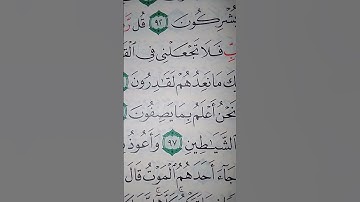 يُشْرِكُونَ ٩٢ قُل
فَلَا تَجْعَلْنِي فِي
مَا نَعِدُهُمْ لَقَٰدِرُونَ
نَحْنُ أَعْلَمُ بِمَا يَصِفُونَ
ٱلشَّيَٰطِينِ ٩٧ وَأَعُوذُ
جَآءَ أَحَدَهُمُ ٱلْمَوْتُ قَالَ